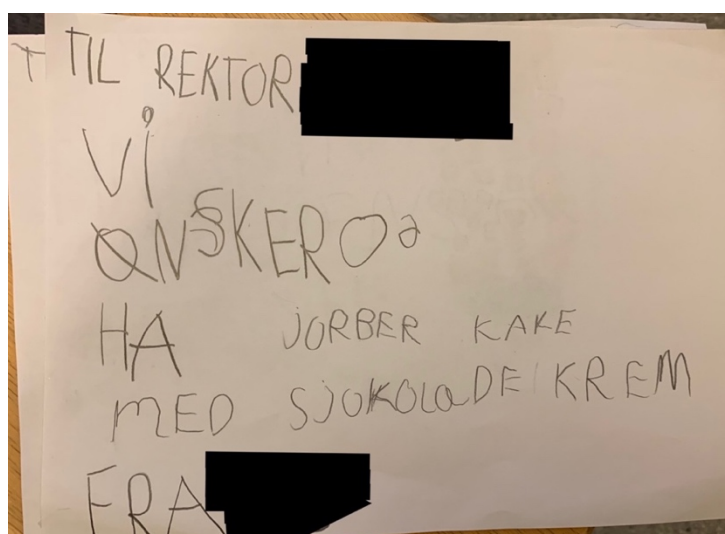 TIL REKTOR
Vi
ØNSKER Oa
HA JORBER KAKE
MED SJOKOLaDE KREM
FRA